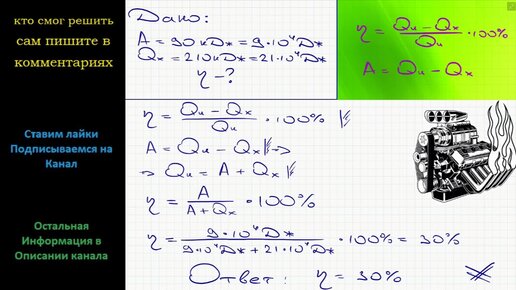 кто смог решить
сам пишите в
комментариях
Ставим лайки
Подписываемся на
Канал
Остальная
Информация в
Описании канала
Дано:
A = 90 кДж = 9·10⁴ Дж
Qх = 210 кДж = 21·10⁴ Дж
η - ?
η = (Qн - Qх)/Qн · 100%
A = Qн - Qх
η = (Qн - Qх)/Qн · 100%
A = Qн - Qх ⇒
→ Qн = A + Qх
η = A/(A + Qх) · 100%
η = 9·10⁴ Дж/(9·10⁴ Дж + 21·10⁴ Дж) · 100% = 30%
Ответ: η = 30%